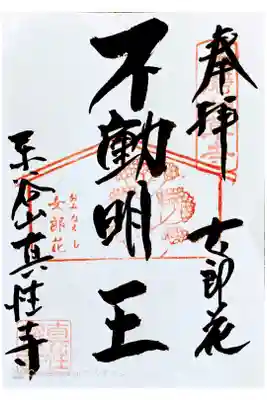 奉拝
女郎花
不動明王
おみなえし
女郎花
東谷山真性寺